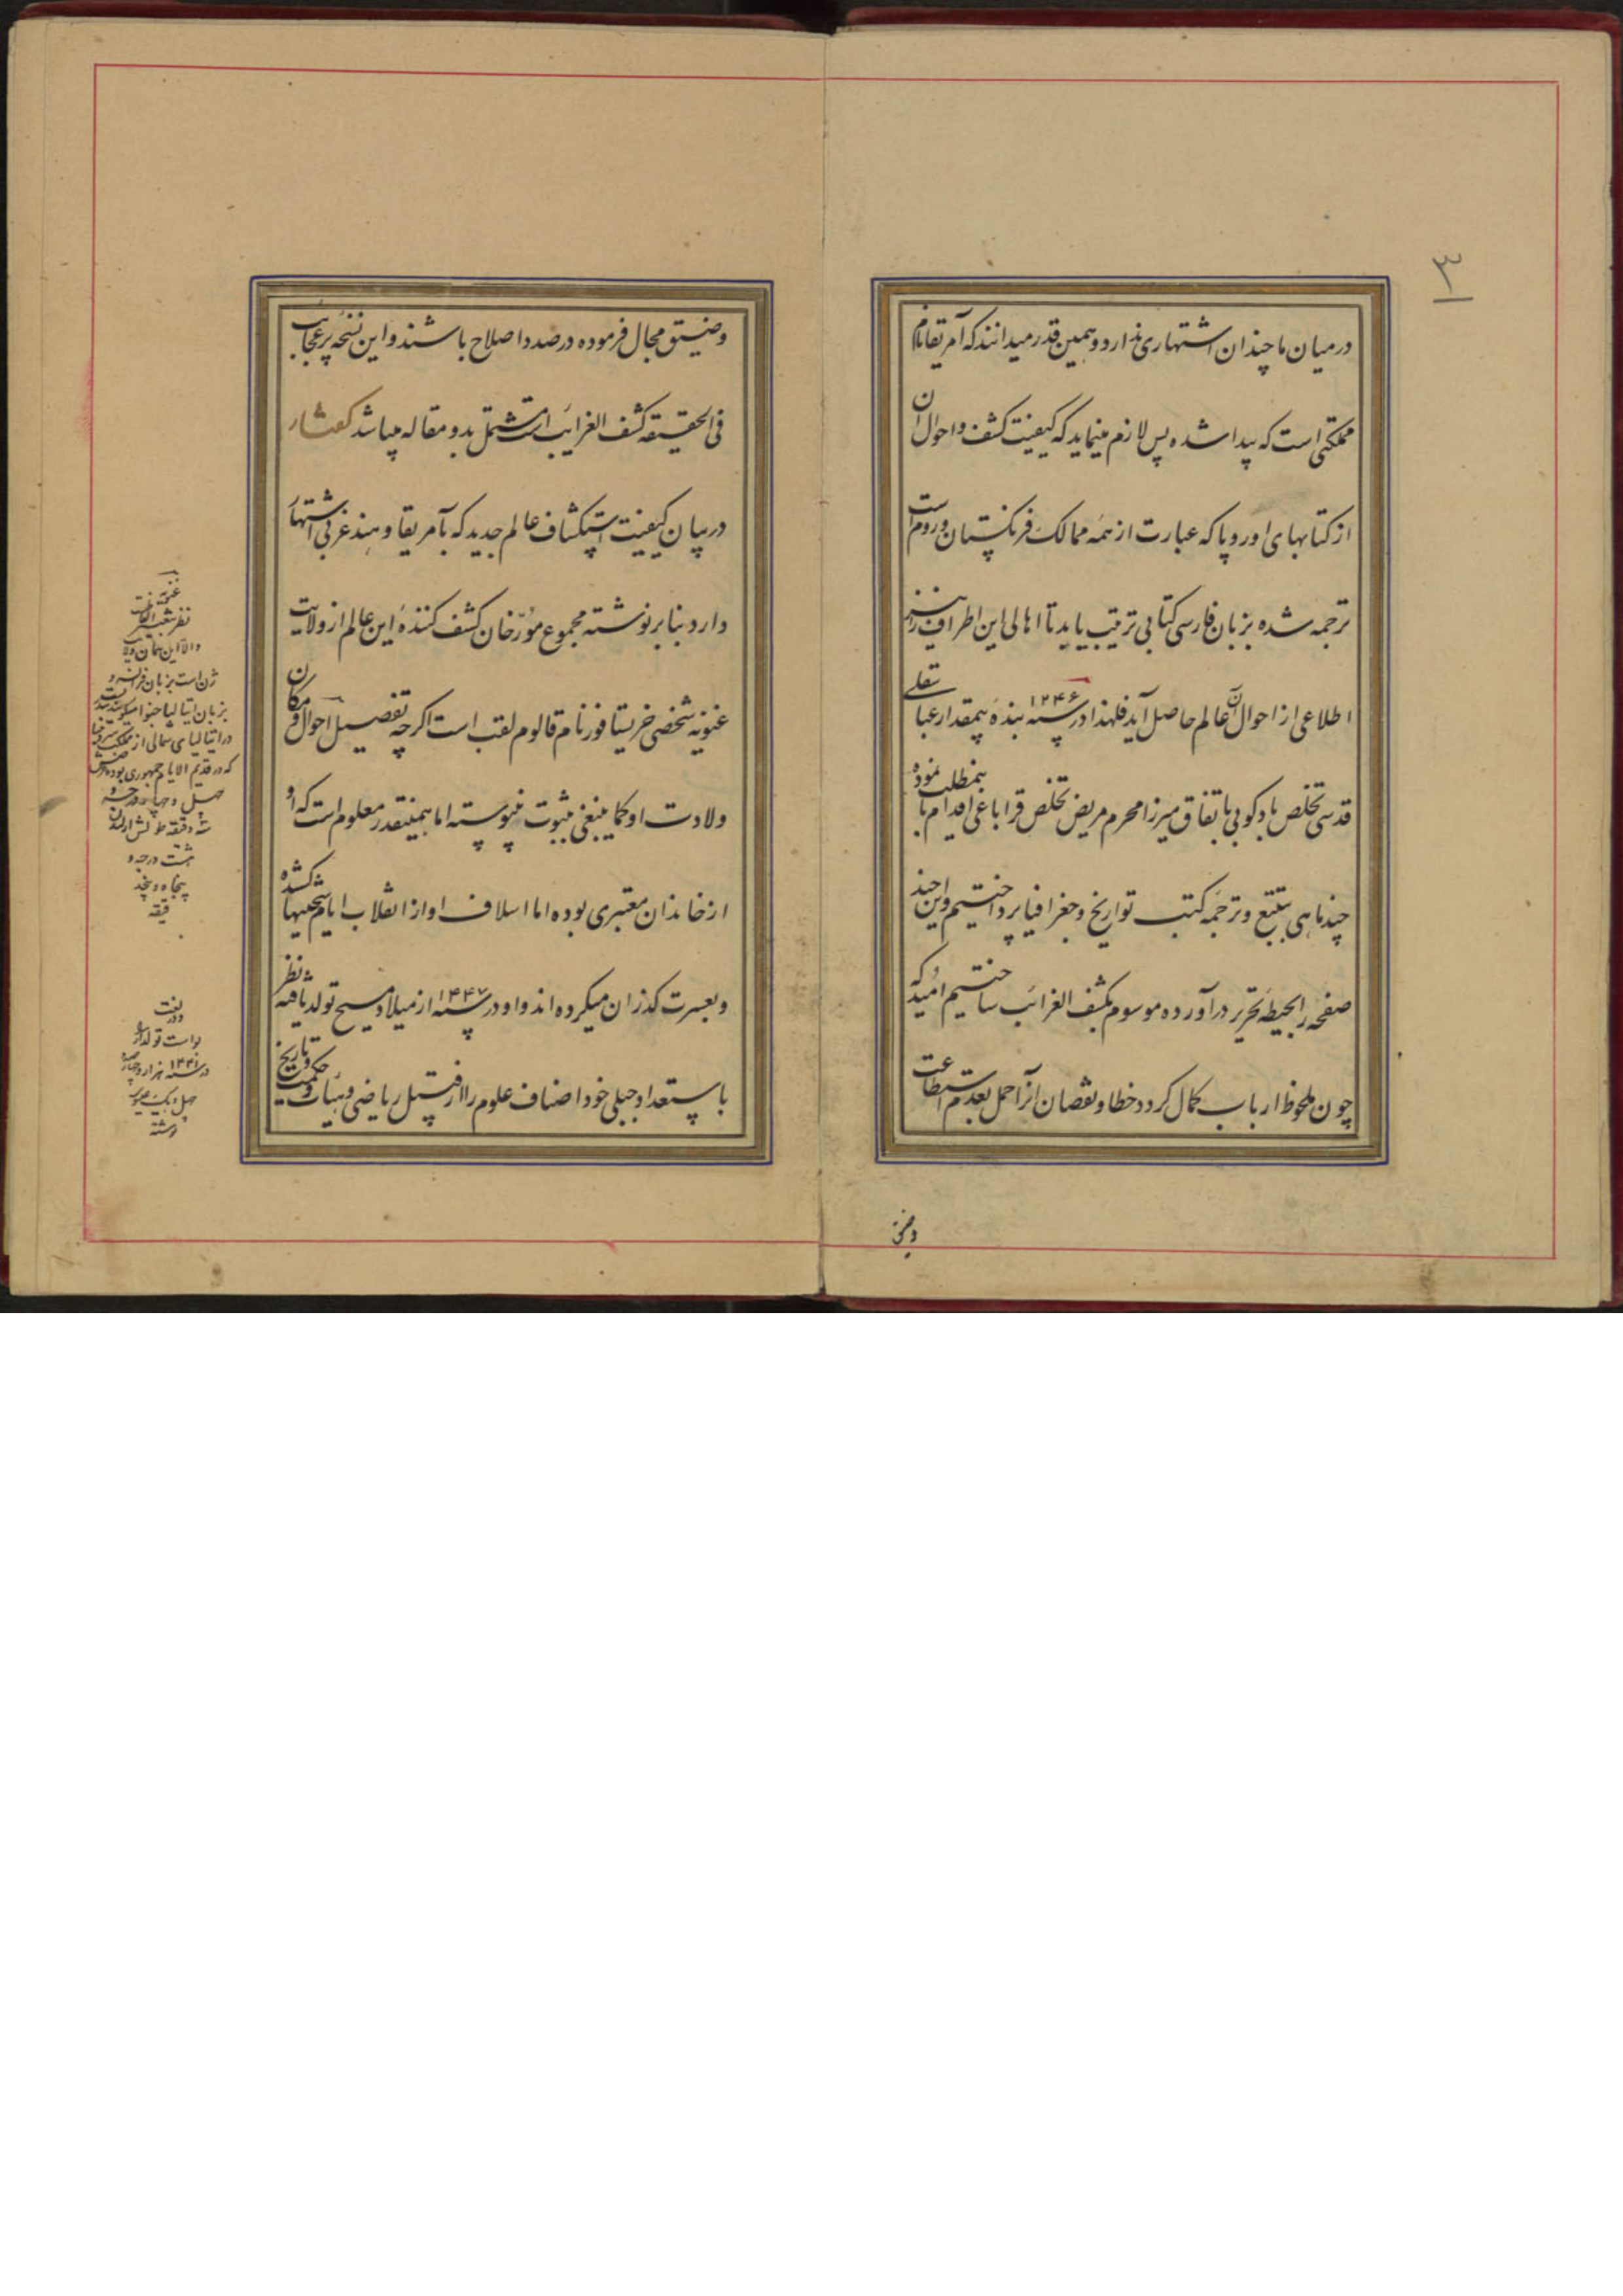 ۳
در میان ما چندان اشتهاری ندارد و همین قدر میدانند که آمریقا نام
مملکتی است که پیدا شده پس لازم مینماید که کیفیت کشف و احوال آن
از کتابهای اوروپا که عبارت از همه ممالک فرنگستان و روم است
ترجمه شده بزبان فارسی کتابی ترتیب یابد تا اهالی این اطراف را نیز
اطلاعی از احوال آن عالم حاصل آید فلهذا در سنه ۱۲۴۶ بنده بیمقدار عباسقلی
قدسی تخلص بادکوبی باتفاق میرزا محرم مریض تخلص قراباغی اقدام باینمطلب نموده
چند ماهی بتتبع و ترجمه کتب تواریخ و جغرافیا پرداختیم و این چند
صفحه را بحیطه تحریر در آورده موسوم بکشف الغرائب ساختیم امید که
چون ملحوظ ارباب کمال کردد خطا و نقصان آنرا حمل بعدم استطاعت
وضیق
وضیق مجال فرموده در صدد اصلاح باشند و این نسخه پر عجایب
فی الحقیقه کشف الغرائب است مشتمل بدو مقاله میباشد کفتار
در بیان کیفیت استکشاف عالم جدید که بآمریقا و هند غربی اشتهار
دارد بنابر نوشته مجموع مورخان کشف کننده این عالم از ولایت
غنویه شخصی خریستافور نام قالوم لقب است اگرچه تفصیل احوال و مکان
ولادت او کما ینبغی بثبوت نپیوسته اما همینقدر معلوم است که او
از خاندان معتبری بوده اما اسلاف او از انقلاب ایام سختیها کشیده
و بعسرت کذران میکرده اند و او در سنه ۱۴۴۷ از میلاد مسیح تولد یافته نظر
باستعداد جبلی خود اصناف علوم را از قبیل ریاضی و هیئات و حکمت و تاریخ
والا این همان ولایت
ژن است بزبان فرانسه و
بزبان ایتالیا جنوا میکویند
در ایتالیای شمالی از مملکت
که در قدیم الایام جمهوری بوده
چهل و چهار درجه و
هشت درجه و
پنجاه و پنج
دقیقه
در لغت
است تولد او را
در سنه ۱۴۴۱ هزار و چهارصد
چهل و یک عیسوی
نوشته